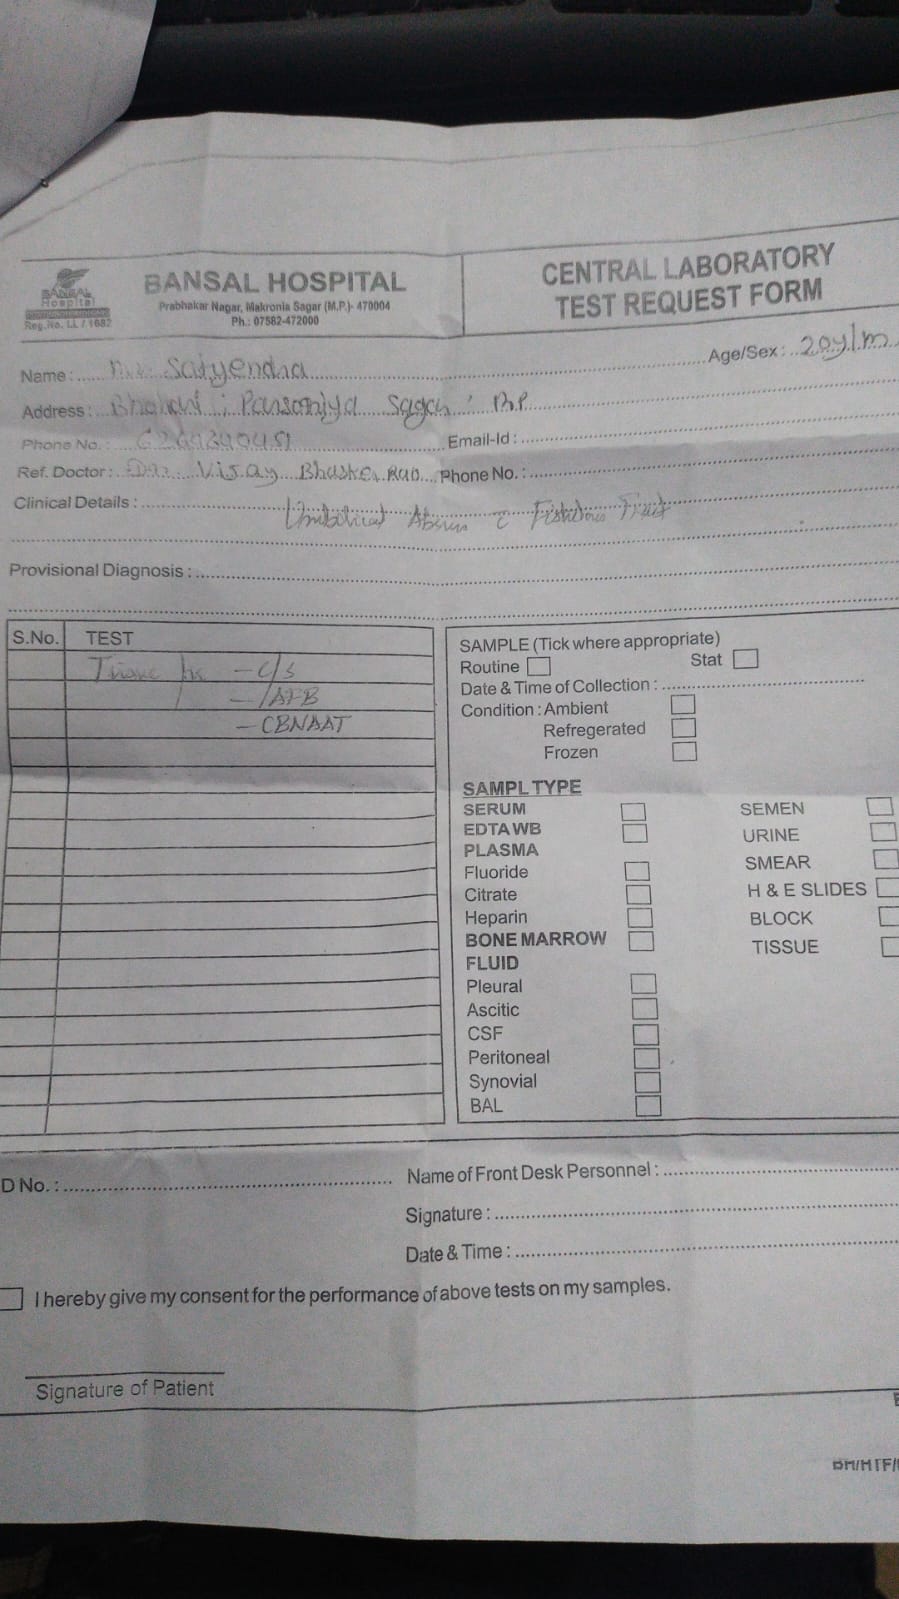 BANSAL
Hospital
Reg.No. LL / 1682
BANSAL HOSPITAL
Prabhakar Nagar, Makronia Sagar (M.P.)- 470004
Ph.: 07582-472000
CENTRAL LABORATORY
TEST REQUEST FORM
Name : Satyendra
Age/Sex : 20y/m
Address : Sagar
Phone No. :
Email-Id :
Ref. Doctor : Vijay Phone No. :
Clinical Details :
Umbilical
Provisional Diagnosis :
S.No. TEST
Tissue - C/S
- AFB
- CBNAAT
SAMPLE (Tick where appropriate)
Routine Stat
Date & Time of Collection :
Condition : Ambient
Refregerated
Frozen
SAMPL TYPE
SERUM
EDTA WB
PLASMA
Fluoride
Citrate
Heparin
BONE MARROW
FLUID
Pleural
Ascitic
CSF
Peritoneal
Synovial
BAL
SEMEN
URINE
SMEAR
H & E SLIDES
BLOCK
TISSUE
D No. :
Name of Front Desk Personnel :
Signature :
Date & Time :
I hereby give my consent for the performance of above tests on my samples.
Signature of Patient